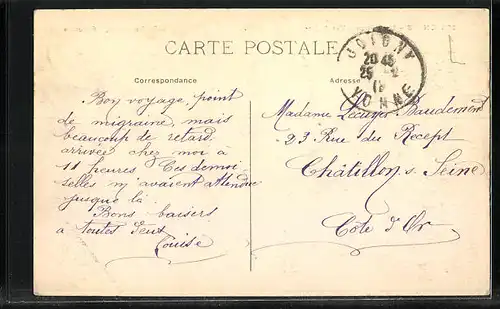 CARTE POSTALE
Correspondance
Adresse
20 45
25
YONNE
Bon voyage, point
de migraine, mais
beaucoup de retard
arrivée chez moi à
11 heures Ces demoi
selles m'avaient attendue
jusque là
Bons baisers
à toutes deux
Louise
Madame Baudement
23 Rue du Recept
Châtillon s. Seine
Côte d'Or